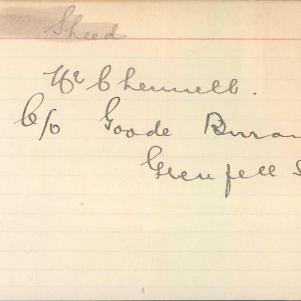 Sheed
Mr Chennell.
C/o Goode Durran
Grenfell S